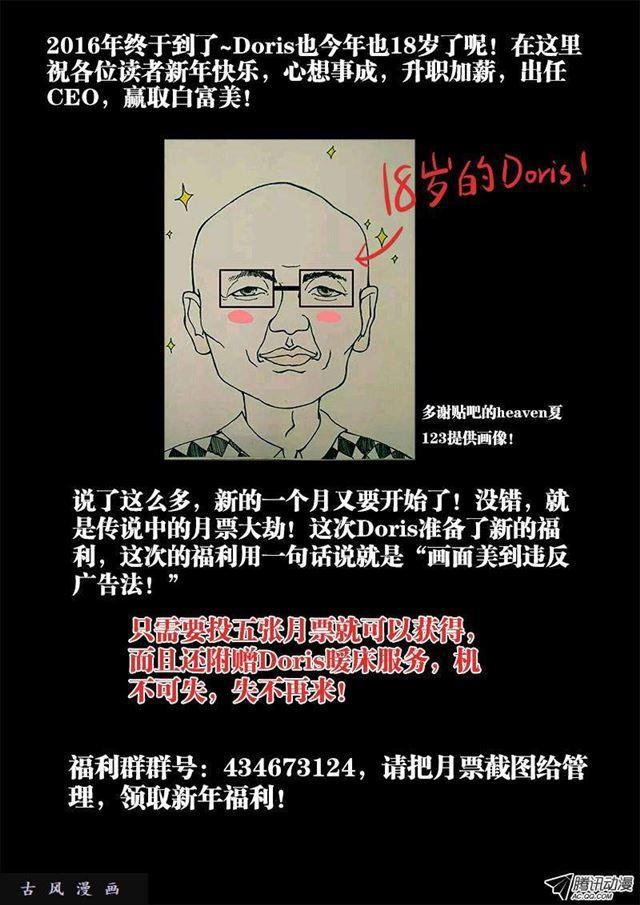 2016年终于到了~Doris也今年也18岁了呢！在这里
祝各位读者新年快乐，心想事成，升职加薪，出任
CEO，赢取白富美！
18岁的Doris！
多谢贴吧的heaven夏
123提供画像！
说了这么多，新的一个月又要开始了！没错，就
是传说中的月票大劫！这次Doris准备了新的福
利，这次的福利用一句话说就是“画面美到违反
广告法！”
只需要投五张月票就可以获得，
而且还附赠Doris暖床服务，机
不可失，失不再来！
福利群群号：434673124，请把月票截图给管
理，领取新年福利！
古风漫画
腾讯动漫
AC.QQ.COM